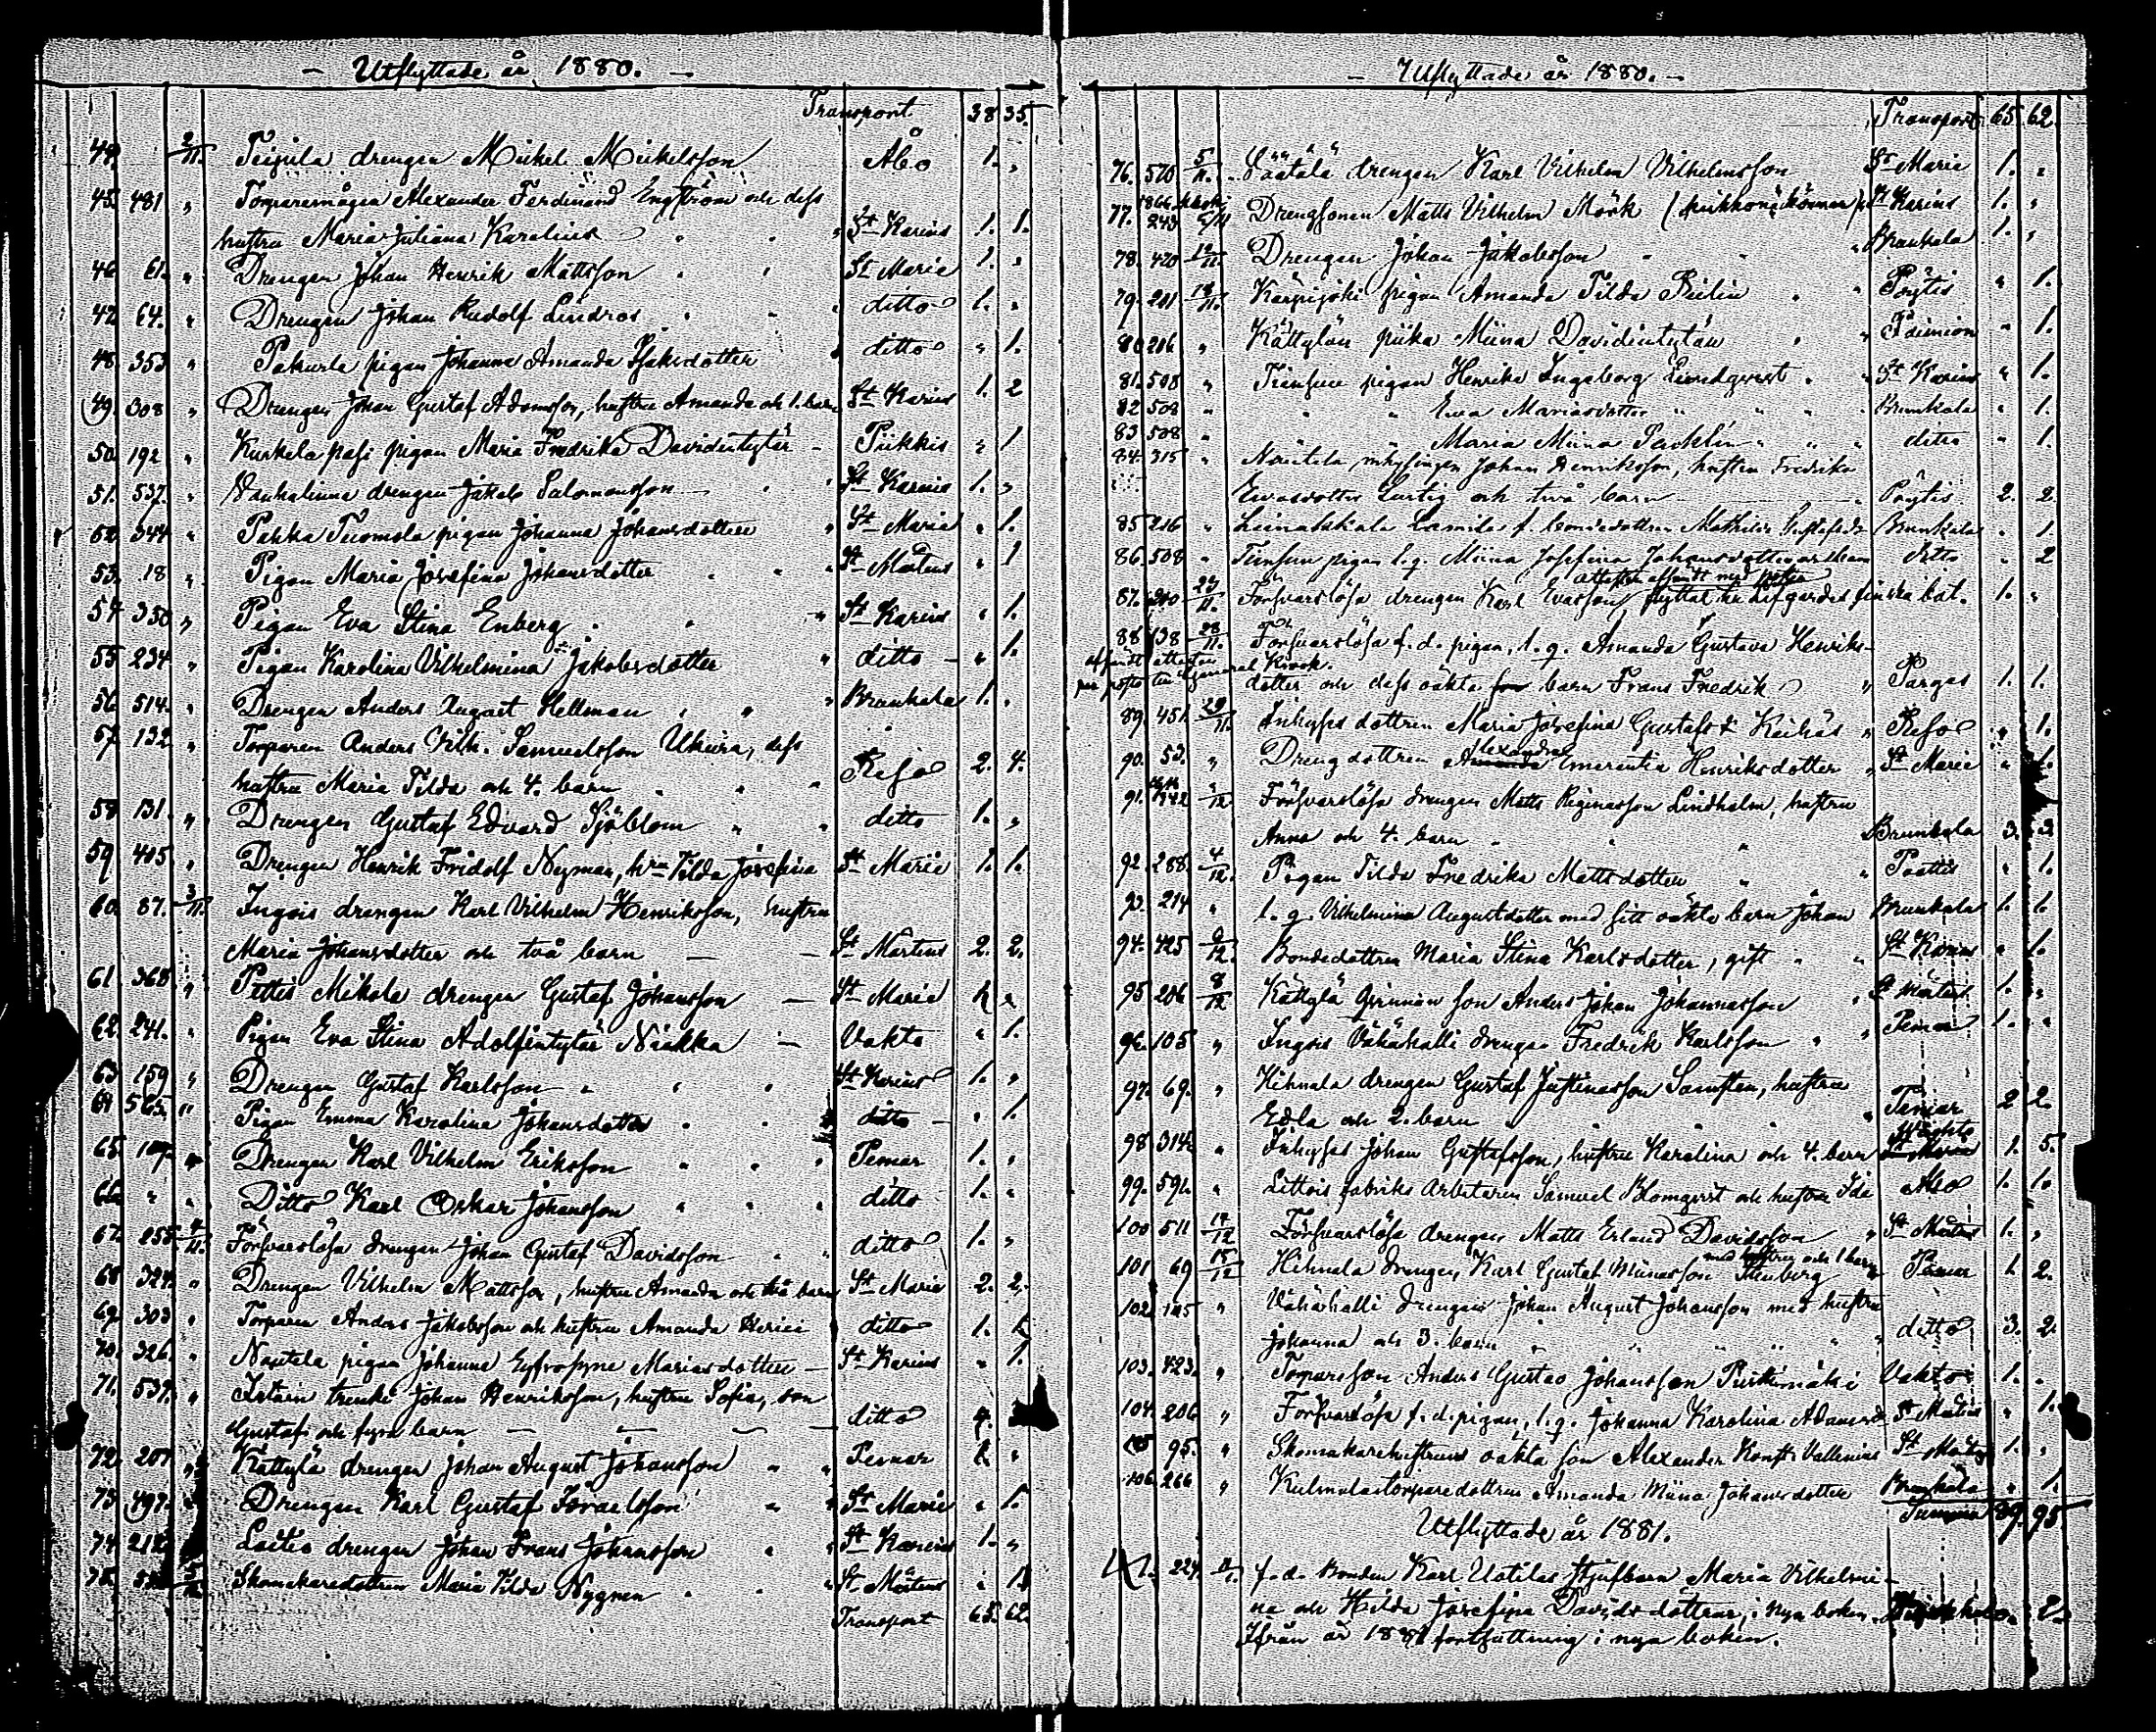 — Utflyttade år 1880. —
Transport 38 35.
44. 2/11. drengen Mickel Mickelsson Åbo 1. „
45. 481 „ Torparemågen Alexander Ferdinand Engström och dess
hustru Maria Juliana Karolina „ St Karins 1. 1.
46. 61. „ Drengen Johan Henrik Mattsson St Marie 1. „
47. 64. „ Drengen Johan Rudolf Lindros ditto 1. „
48. 353 „ Pakurla pigan Johanna Amanda Isaksdotter ditto „ 1.
49. 308 „ Drengen Johan Gustaf Adamsson, hustru Amanda och 1. barn St Karins 1. 2
50. 192 „ Kurkela pigan Maria Fredrika Davidintytär Piikkis „ 1
51. 537. „ Vanhalinna drengen Jakob Salomonsson St Karins 1. „
52. 344 „ Pahka Tuomola pigan Johanna Johansdotter „ St Marie „ 1.
53. 18 „ Pigan Maria Josefina Johansdotter „ St Mårtens „ 1
54 350 „ Pigan Eva Stina Enberg St Karins „ 1.
55 234 „ Pigan Karolina Vilhelmina Jakobsdotter „ ditto „ 1.
56. 514. „ Drengen Anders August Hellman „ Brunkala 1. „
57. 132 „ Torparen Anders Vilh. Samuelsson Ukura, dess
hustru Maria Tilda och 4. barn Reso 2. 4.
58 131. „ Drengen Gustaf Edvard Sjöblom ditto 1. „
59 405. „ Drengen Henrik Fridolf Nyman, hru Tilda Josefina St Marie 1. 1.
60. 87. 3/11. Ingois drengen Karl Vilhelm Henriksson, hustru
Maria Johansdotter och två barn — St Mårtens 2. 2.
61. 368. „ Pettis Mikola drengen Gustaf Johansson — St Marie 1. „
62. 241. „ Pigan Eva Stina Adolfintytär Niukka — Vahto „ 1.
63 159 „ Drengen Gustaf Karlsson St Karins 1. „
64 565. „ Pigan Emma Karolina Johansdotter ditto „ 1.
65. „ Drengen Karl Vilhelm Eriksson Pemar 1. „
66. „ „ Ditto Karl Oskar Johansson ditto 1. „
67. 255 4/11. Försvarslösa drengen Johan Gustaf Davidsson ditto 1. „
68 324. „ Drengen Vilhelm Mattsson, hustru Amanda och två barn St Marie 2. 2.
69. 303 „ Torparen Anders Jakobsson och hustru Amanda ditto 1. 1.
70. 326. „ Nautela pigan Johanna Eufrosyne Mariasdotter — St Karins „ 1.
71. 537. „ drenki Johan Henriksson, hustru Sofia, son
Gustaf och fyra barn ditto 4.
72. 207. „ Kättylä drengen Johan August Johansson Pemar 1. „
73 497. Drengen Karl Gustaf Israelsson St Marie „ 1.
74 212 Laitis drengen Johan Frans Johansson „ St Karins 1. „
75. Skomakaredottren Maria Tilda Nygren „ St Mårtens „ 1
Transport 65. 62.
— Utflyttade år 1880. —
Transport 65. 62.
76. 520 5/11. drengen Karl Vilhelm Vilhelmsson St Marie 1. „
77. 243 Drengsonen Matts Vilhelm Mörk St Karins 1. „
78. 420 12/11. Drengen Johan Jakobsson „ Brunkala 1. „
79. 201 14/11. Karpijoki pigan Amanda Tilda „ Pöytis „ 1.
80 206 „ Kättylän piika Miina Davidintytär „ Paimion „ 1.
81. 508 „ pigan Henrika Ingeborg Lundqvist „ St Karins „ 1.
82 508 „ „ „ Eva Mariasdotter „ Brunkala „ 1.
83 508 „ Maria Miina ditto „ 1.
84. 315 „ Nautela inhysingen Johan Henriksson, hustru Fredrika
Evasdotter Lustig och två barn — Pöytis 2. 2.
85 216 „ f. bondedottren Mathilda Brunkala „ 1
86. 508 „ pigan l. q. Miina Josefina Johansdotter ditto „ 2
87. 27/11. Försvarslösa drengen Karl Evasson, flyttat till Lifgardes finska bat. 1. „
88 138 28/11. Försvarslösa f. d. pigan, l. q. Amanda Gustava Henriks-
dotter och dess oäkta barn Frans Fredrik „ Pargas 1. 1.
89. 451. 29/11. Inhyses dottren Maria Josefina Gustafsd. „ Reso „ 1.
90. 53. „ Drengdottren Alexandra Emerentia Henriksdotter „ St Marie „ 1.
91. Försvarslösa drengen Matts Reginasson Lindholm, hustru
Anna och 4. barn Brunkala 3. 3.
92. 288. 4/12. Pigan Tilda Fredrika Mattsdotter „ Paattis „ 1.
93. 214 „ l. q. Vilhelmina Augustdotter med sitt oäkta barn Johan Brunkala 1. 1.
94. 425 Bondedottren Maria Stina Karlsdotter, gift St Karins „ 1.
95 206 8/12 Kättylä son Anders Johan Johannasson „ St Mårtens 1. „
96. 105 „ Ingois Vähähalli drengen Fredrik Karlsson „ Pemar 1. „
97. 69. „ Hihnala drengen Gustaf Justinasson Samsten, hustru
Edla och 2. barn Pemar 2 2.
98 314 „ Inhyses Johan Gustafsson, hustru Karolina och 4. barn 1. 5.
99. 591. „ Littois fabriks arbetaren Samuel Blomqvist och hustru Ida Åbo 1. 1.
100 511 14/12 Försvarslösa drengen Matts Erland Davidsson „ St Mårtens 1. „
med hustru och 1 barn
101. 69 15/12 Hihnala drengen Karl Gustaf Miinasson Stenberg „ Pemar 1. 2.
102. 105 „ Vähähalli drengen Johan August Johansson med hustru
Johanna och 3. barn ditto 3. 2.
103. 423. „ Torparesson Anders Gustav Johansson Vahto 1. „
104. 206 „ Försvarslösa f. d. pigan, l. q. Johanna Karolina Adamsd. St Mårtens „ 1.
95. „ Skomakarehustruns oäkta son Alexander Vallenius St Mårtens 1. „
106. 266 „ Kulmalatorparedottren Amanda Miina Johansdotter Brunkala „ 1.
Summa 89. 95.
Utflyttade år 1881.
1. 224. f. d. Bonden Karl Uotilas styfbarn Maria Vilhelmi-
na och Hilda Josefina Davidsdöttrar, i nya boken „ 2.
Ifrån år 1881 fortsättning i nya boken.